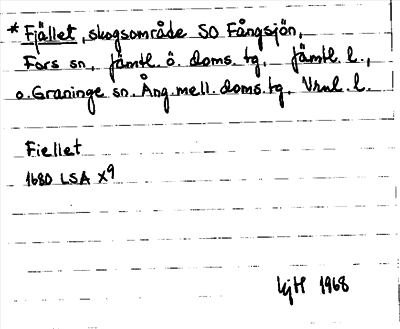 * Fjället, skogsområde SO Fångsjön,
Fors sn, Jämtl. ö. doms. tg, Jämtl. l.,
o. Graninge sn. Ång. mell. doms. tg. Vrnl. l.
Fiellet
1680 LSA X9
KjH 1968